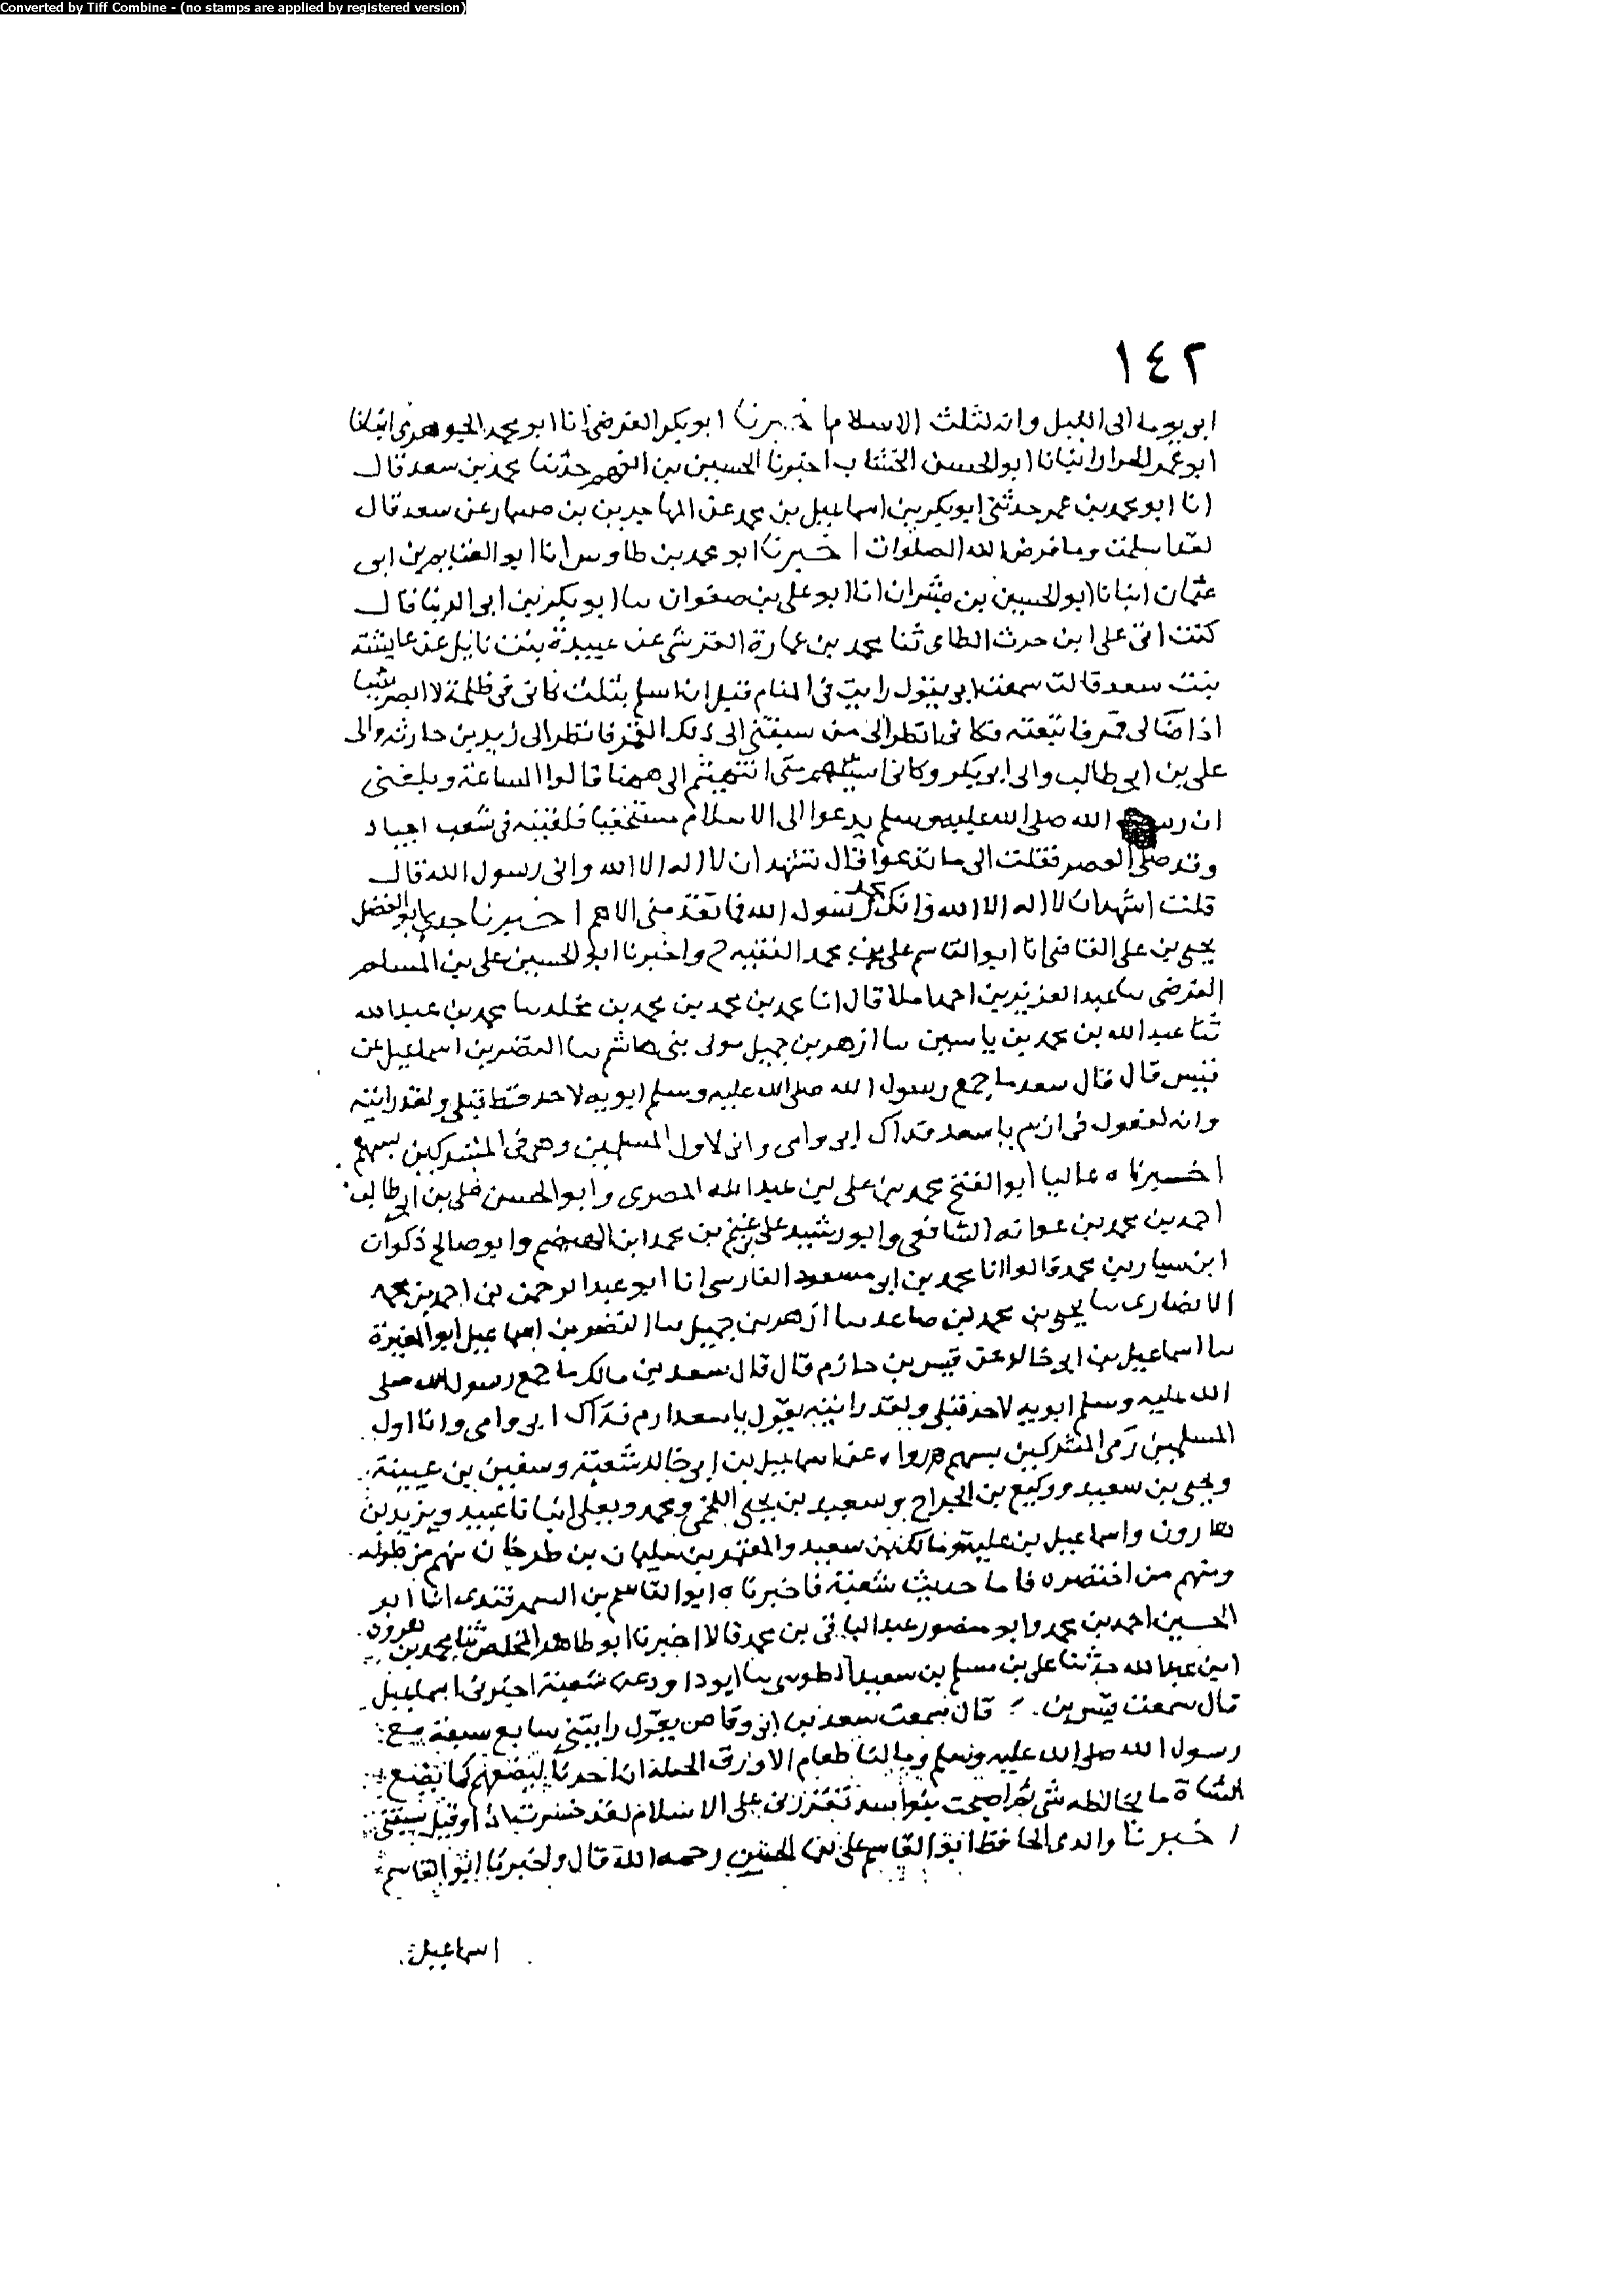 Converted by Tiff Combine - (no stamps are applied by registered version)
١٤٢
ابو يومه الى الليل وانه لثلث الاسلام اخبرنا ابو بكر الفرضى انا ابو محمد الجوهرى انبانا
ابو عمر انبانا ابو الحسن الخشاب اخبرنا الحسين بن الفهم حدثنا محمد بن سعد قال
انا ابو محمد بن عمر حدثنى ابو بكر بن اسماعيل بن محمد عن المهاجر بن بن مسمار عن سعد قال
لقد اسلمت وما فرض الله الصلوات اخبرنا ابو محمد بن طاوس انا ابو الغنايم بن ابى
عثمان انبانا ابو الحسين بن بشران انا ابو على بن صفوان سا ابو بكر بن ابى الدنيا قال
كتبت الى على ابن حرث الطاى ثنا محمد بن عمارة القرشى عن عبيدة بنت نابل عن عايشة
بنت سعد قالت سمعت ابى يقول رايت فى المنام قبل ان اسلم بثلث كانى فى ظلمة لا ابصر شيا
اذا ضا لى قمر فاتبعته فكانى انظر الى من سبقنى الى ذلك القمر فانظر الى زيد بن حارثه والى
على بن ابى طالب والى ابو بكر وكانى اسيلهم متى انتهيتم الى ههنا قالوا الساعة وبلغنى
ان رسول الله صلى الله عليه وسلم يدعوا الى الاسلام مستخفيا فلقيته فى شعب اجياد
وقد صلى العصر فقلت الى ما تدعوا قال تشهد ان لا اله الا الله وانى رسول الله قال
قلت اشهد ان لا اله الا الله وانك محمد رسول الله فما تقدمنى الا هم اخبرنا جدى ابو الفضل
يحيى بن على القاضى انا ابو القاسم على بن محمد الفقيه ح واخبرنا ابو الحسين على بن المسلم
الفرضى سا عبد العزيز بن احمد املا قال انا محمد بن محمد بن محمد بن مخلد سا محمد بن عبد الله
ثنا عبد الله بن محمد بن ياسين سا ازهر بن جميل مولى بنى هاشم سا النضر بن اسماعيل عن
قيس قال قال سعد ما جمع رسول الله صلى الله عليه وسلم ابويه لاحد قط قبلى ولقد رايته
وانه ليقول فى ارم ياسعد فداك ابى وامى وانى لاول المسلمين رمى المشركين بسهم
اخبرناه عاليا ابو الفتح محمد بن على بن عبد الله المصرى وابو الحسن على بن ابى طالب
احمد بن محمد بن عوانه الشافعى وابو رشيد على بن محمد ابن الهيضم وابو صالح ذكوان
ابن سيار بن محمد قالوا انا محمد بن ابى مسعود الفارسى انا ابو عبد الرحمن بن احمد بن محمد
الانصارى سا يحيى بن محمد بن صاعد سا ازهر بن جميل سا النضر بن اسماعيل ابو المغيرة
سا اسماعيل بن ابى خالد عن قيس بن حازم قال قال سعد بن مالك ما جمع رسول الله صلى
الله عليه وسلم ابويه لاحد قبلى ولقد رايته يقول ياسعد ارم فداك ابى وامى وانا اول
المسلمين رمى المشركين بسهم رواه عن اسماعيل بن ابى خالد شعبة وسفين بن عيينة
ويحيى بن سعيد ووكيع بن الجراح وسعيد بن يحيى اللخمى ومحمد ويعلى عبيد ويزيد بن
هارون واسماعيل بن علية بن سعيد والمعتمر بن سليمان بن طرخان منهم من طوله
ومنهم من اختصره فاما حديث شعبة فاخبرناه ابو القاسم بن السمرقندى انا ابو
الحسين احمد بن محمد وابو منصور عبد الباقى بن محمد قالا اخبرنا ابو طاهر المخلص ثنا محمد بن هرون
ابن عبد الله حدثنا على بن مسلم بن سعيد الطوسى سا ابو داود عن شعبة اخبرنى اسماعيل
قال سمعت قيس بن قال سمعت سعد بن ابى وقاص يقول رايتنى سابع سبعة مع
رسول الله صلى الله عليه وسلم وما لنا طعام الا ورق الحبلة ان احدنا ليضع كما تضع
الشاة ما يخالطه شى ثم اصبحت بنوا سد تعززنى على الاسلام لقد خسرت اذا وقيل
اخبرنا والدى الحافظ ابو القاسم على بن الحسين رحمه الله قال واخبرنا ابو القاسم
اسماعيل